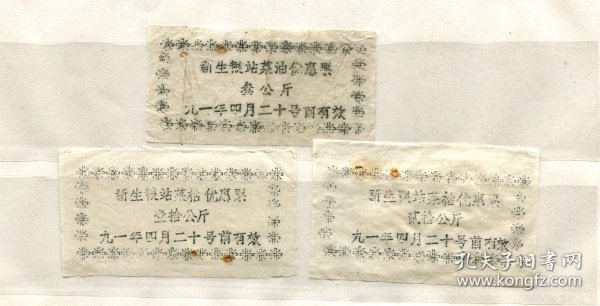 新生粮站菜油优惠票
叁公斤
九一年四月二十号前有效
新生粮站菜枯优惠票
壹拾公斤
九一年四月二十号前有效
新生粮站菜枯优惠票
贰拾公斤
九一年四月二十号前有效
孔夫子旧书网
www.kongfz.com